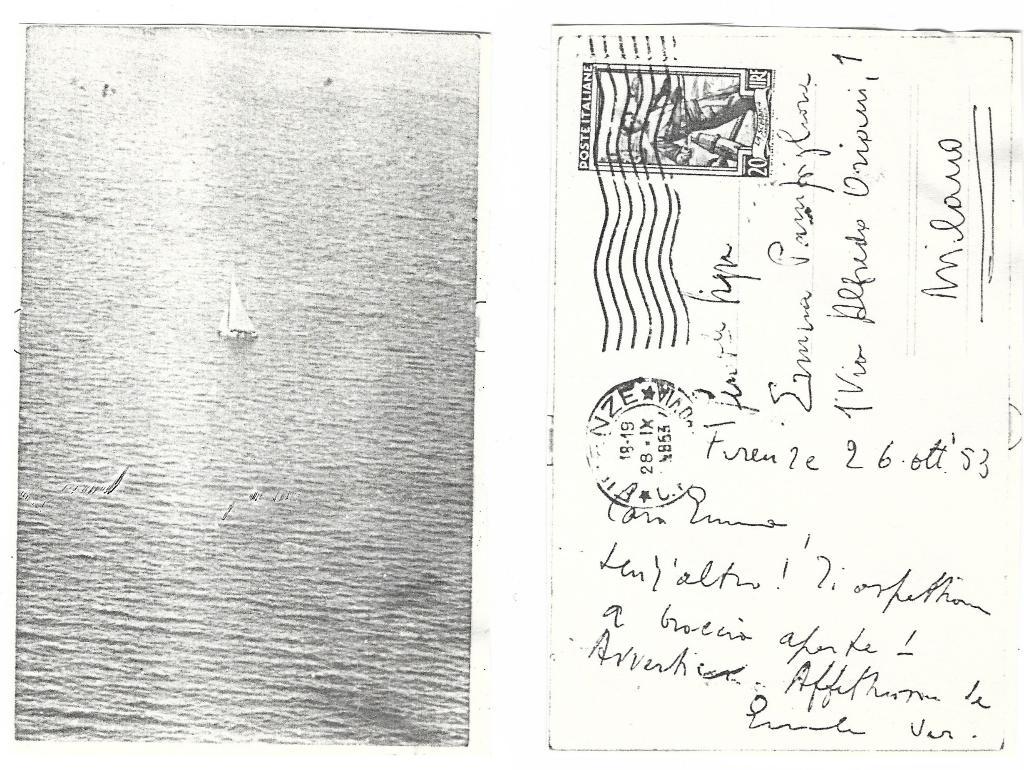 POSTE ITALIANE
20 LIRE
FIRENZE
18-19
28-IX
1953
Gentile Sig.ra
Emma
Via Alfredo Oriani, 1
Milano
Firenze 26 ott '53
Cara Emma
senz'altro! Ti aspettiamo
a braccia aperte!
da